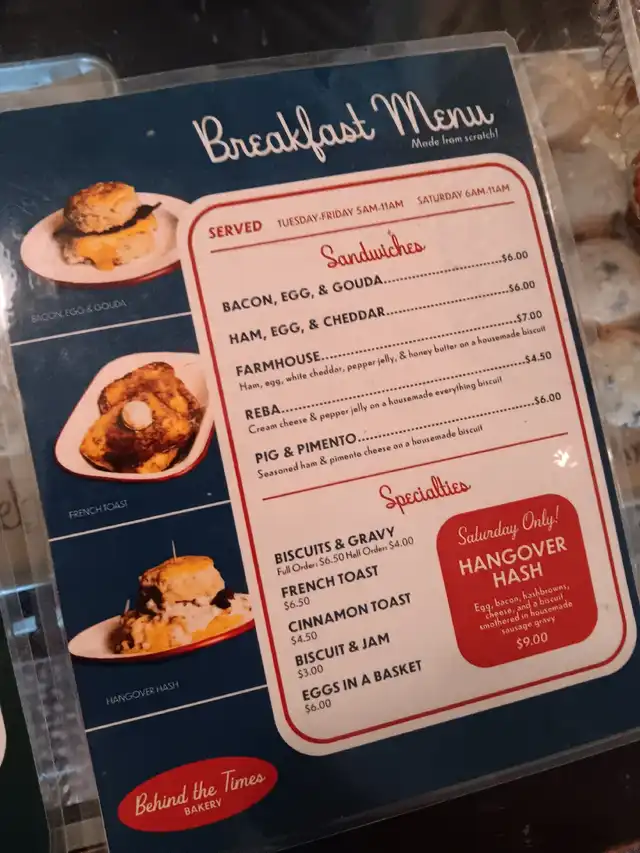 Breakfast Menu
Made from scratch!
SERVED TUESDAY-FRIDAY 5AM-11AM SATURDAY 6AM-11AM
Sandwiches
BACON, EGG, & GOUDA...$6.00
HAM, EGG, & CHEDDAR...$6.00
FARMHOUSE...$7.00
Ham, egg, white cheddar, pepper jelly, & honey butter on a housemade biscuit
REBA...$4.50
Cream cheese & pepper jelly on a housemade everything biscuit
PIG & PIMENTO...$6.00
Seasoned ham & pimento cheese on a housemade biscuit
Specialties
BISCUITS & GRAVY
Full Order: $6.50 Half Order: $4.00
FRENCH TOAST
$6.50
CINNAMON TOAST
$4.50
BISCUIT & JAM
$3.00
EGGS IN A BASKET
$6.00
Saturday Only!
HANGOVER
HASH
Egg, bacon, hashbrowns,
cheese, and a biscuit
smothered in housemade
sausage gravy
$9.00
BACON, EGG & GOUDA
FRENCH TOAST
HANGOVER HASH
Behind the Times
BAKERY